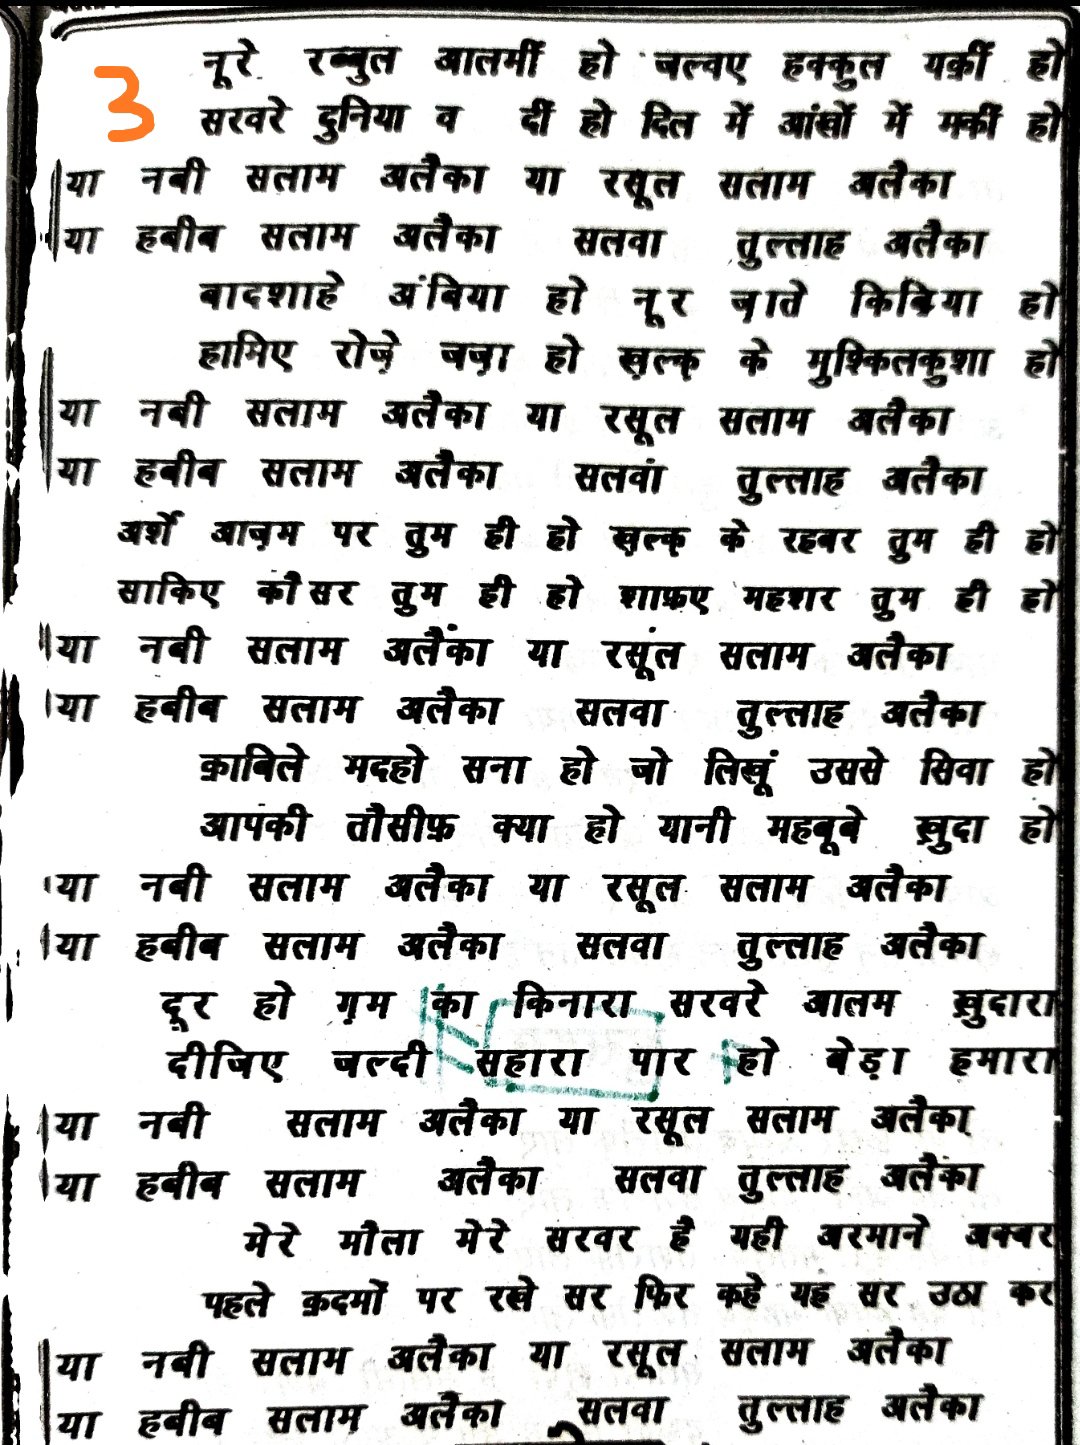 नूरे रब्बुल आलमीं हो जल्वए हक्कुल यक़ीं हो
3
सरवरे दुनिया व दीं हो दिल में आंखों में मकीं हो
या नबी सलाम अलैका या रसूल सलाम अलैका
या हबीब सलाम अलैका सलवा तुल्लाह अलैका
बादशाहे अंबिया हो नूर ज़ाते किब्रिया हो
हामिए रोज़े जज़ा हो ख़ल्क़ के मुश्किलकुशा हो
या नबी सलाम अलैका या रसूल सलाम अलैका
या हबीब सलाम अलैका सलवा तुल्लाह अलैका
अर्शे आज़म पर तुम ही हो ख़ल्क़ के रहबर तुम ही हो
साकिए कौसर तुम ही हो शाफ़ए महशर तुम ही हो
या नबी सलाम अलैका या रसूल सलाम अलैका
या हबीब सलाम अलैका सलवा तुल्लाह अलैका
क़ाबिले मदहो सना हो जो लिखूं उससे सिवा हो
आपकी तौसीफ़ क्या हो यानी महबूबे ख़ुदा हो
या नबी सलाम अलैका या रसूल सलाम अलैका
या हबीब सलाम अलैका सलवा तुल्लाह अलैका
दूर हो ग़म का किनारा सरवरे आलम ख़ुदारा
दीजिए जल्दी सहारा पार हो बेड़ा हमारा
या नबी सलाम अलैका या रसूल सलाम अलैका
या हबीब सलाम अलैका सलवा तुल्लाह अलैका
मेरे मौला मेरे सरवर है यही अरमाने अक्बर
पहले क़दमों पर रखे सर फिर कहे यह सर उठा कर
या नबी सलाम अलैका या रसूल सलाम अलैका
या हबीब सलाम अलैका सलवा तुल्लाह अलैका